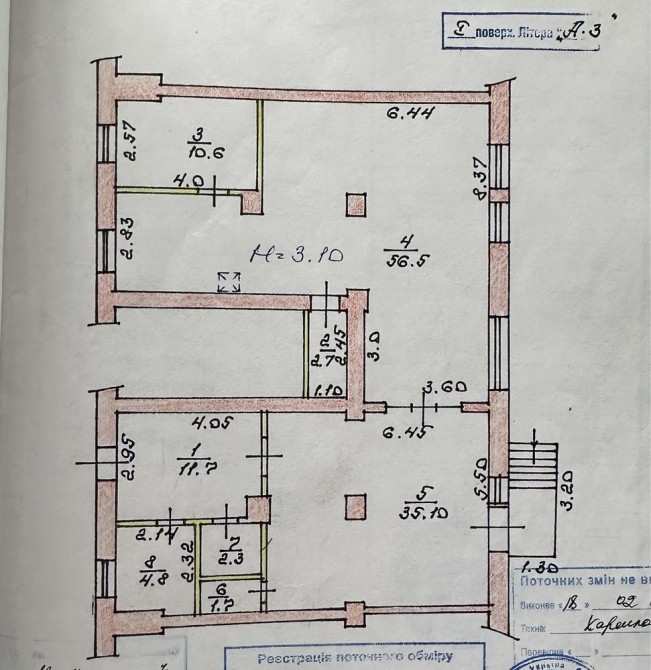 I поверх. Літера "А-3"
6.44
2.57
3
10.6
4.0
8.37
2.83
H=3.10
4
56.5
2
2.7
2.45
3.0
1.10
3.60
4.05
6.45
2.95
1
11.7
5.50
3.20
5
35.10
2.14
2.32
7
2.3
8
4.8
6
1.7
1.30
Поточних змін не ви
Виконав «18» 02
Технік
Перевірив « »
Реєстрація поточного обміру
Україна